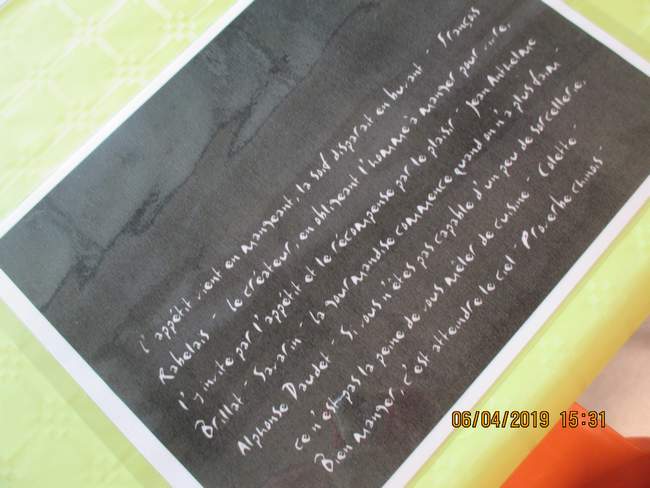 L'appétit vient en mangeant, la soif disparaît en buvant - François
Rabelais - Le créateur, en obligeant l'homme à manger pour vivre,
l'y invite par l'appétit et le récompense par le plaisir - Jean Anthelme
Brillat-Savarin - la gourmandise commence quand on n'a plus faim -
Alphonse Daudet - Si vous n'êtes pas capable d'un peu de sorcellerie,
ce n'est pas la peine de vous mêler de cuisine - Colette -
Bien manger, c'est atteindre le ciel - Proverbe chinois -
06/04/2019 15:31